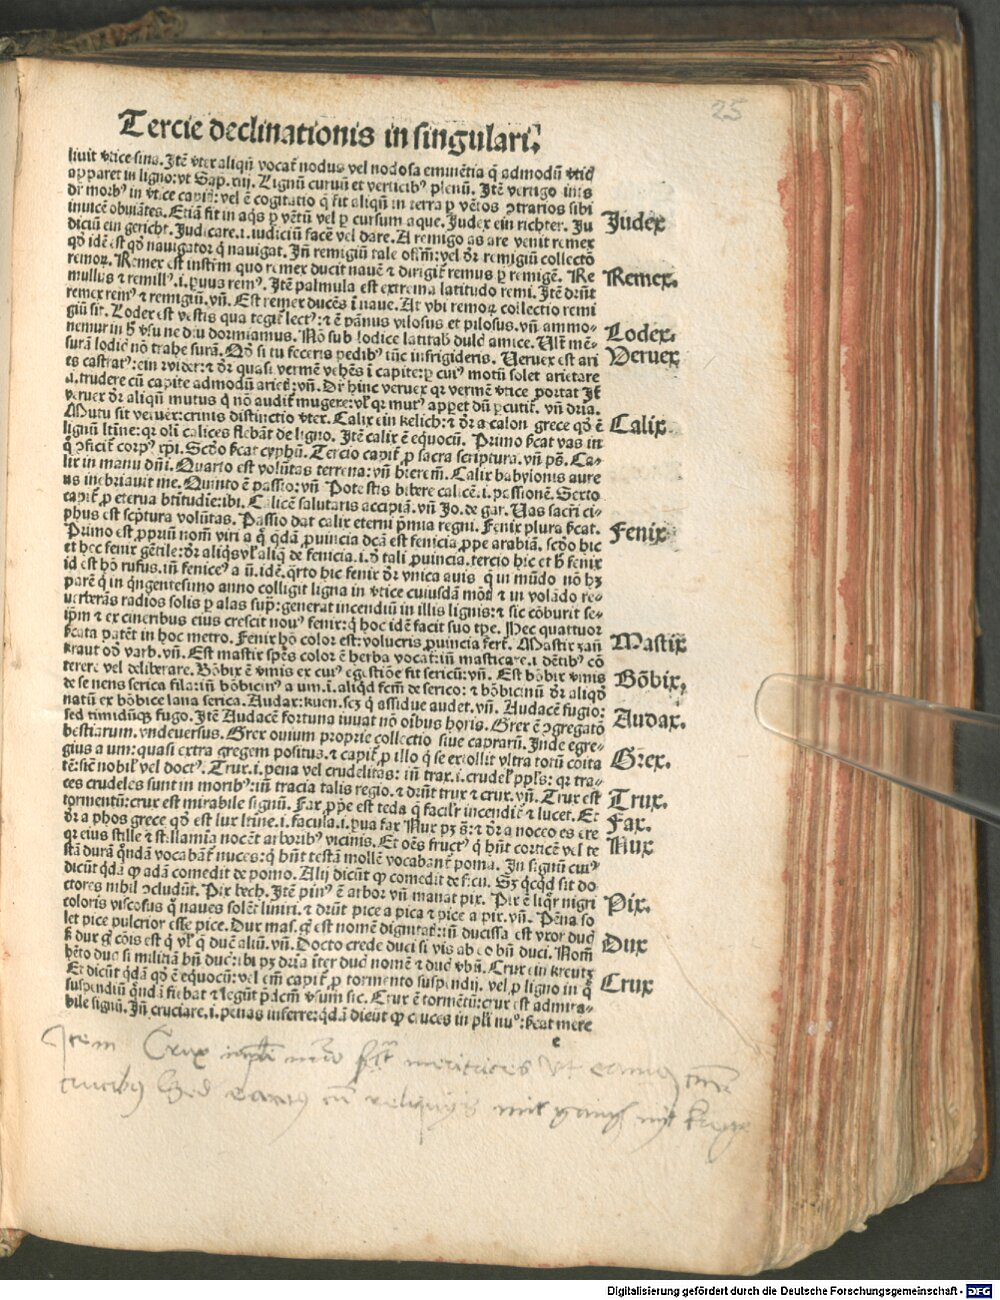 25
Tercie declinationis in singulari.
liuit vtice sina. Itē vter aliqñ vocat̃ nodus vel nodosa eminētia q̃ admodū vtic̃
apparet in ligno: vt Sap. xiij. Lignū curuū et verticibꝰ plenū. Itē vertigo in is
dr̃ morbꝰ in vtice capit̃: vel ē cogitatio q̃ fit aliqñ in terra p vētos ꝯtrarios sibi
inuicē obuiātes. Etiā fit in aq̄s p vētū vel p cursum aque. Judex ein richter. Ju
diciū ein gericht. Judicare .i. iudiciū facē vel dare. A remigo as are venit remex
qď idē est qď nauigator q̃ nauigat. Iñ remigiū tale offm̃: vel dr̃ remigiū collectō
remoꝝ. Remex est instr̃m quo remex ducit nauē ⁊ dirigit̃ remus p remigē. Re
mullus ⁊ remillꝰ .i. puus remꝰ. Itē palmula est extrema latitudo remi. Itē dr̃nt
remex remꝰ ⁊ remigiū. vñ. Est remex ducēs i naue. At vbi remoꝝ collectio remi
giū sit. Lodex est vestis qua tegit̃ lectꝰ: ⁊ ē pānus vilosus et pilosus. vñ ammo-
nemur in h̃ vsu ne diu dormiamus. Nō sub lodice latitab dulc̃ amice. Ult̃ mē-
surā lodic̃ nō trahe surā. Qď si tu feceris pedibꝰ tūc infrigideris. Ueruex est ari
es castratꝰ: ein wider: ⁊ dr̃ quasi vermē vehēs i capite: p cuiꝰ motū solet arietare
.i. trudere cū capite admodū ariet̃: vñ. Dr̃ hinc veruex qr̃ vermē vtice portat Itē
veruex dr̃ aliqñ mutus q̃ nō audit̃ mugere: vl̃ qr̃ mutꝰ appet dū pcutit̃. vñ dr̃ia.
Mutu sit veruex: crinis distinctio vter. Calix ein kelich: ⁊ dr̃ a calon grece qď ē
lignū lt̃ine: qr̃ oli calices fiebāt de ligno. Itē calix ē equocū. Primo sc̃at vas in
q̃ ꝯficit̃ corpꝰ xp̃i. Scďo sc̃at cyphū. Tercio capit̃ p sacra scriptura. vñ ps̃. Ca-
lix in manu dñi. Quarto est volūtas terrena: vñ hierem̃. Calix babylonis aure
us inebriauit me. Quinto ē passio: vñ Potestis bibere calicē .i. passionē. Sexto
capit̃ p eterua btitudie: ibi. Calicē salutaris accipiā. vñ Jo. de gar. Uas sacri ci-
phus est sc̃ptura volūtas. Passio dat calix eterni pmia regni. Fenix plura sc̃at.
Primo est ꝓpriū nom̃ viri a q̃ qdā puincia dc̃a est fenicia ꝓpe arabiā. scďo hic
et hec fenix gētile: dr̃ aliq̃s vl̃ aliq̃ de fenicia .i. d̃ tali puincia. tercio hic et h̃ fenix
id est hō rufus. iñ feniceꝰ a ū. idē. q̃rto hic fenix dr̃ vnica auis q̃ in mūdo nō hꝫ
parē q̃ in q̃ngentesimo anno colligit ligna in vtice cuiusdā mōt̃ ⁊ in volādo re-
uerberās radios solis p alas sup̃: generat incendiū in illis lignis: ⁊ sic cōburit se-
ipm̃ ⁊ ex cineribus eius crescit nouꝰ fenix: q̃ hoc idē facit suo tpe. Hec quattuor
sc̃ata patēt in hoc metro. Fenix hō color est: volucris puincia fert̃. Mastix ꝫañ
kraut oď varb. vñ. Est mastix spēs color ē herba vocat̃: iñ masticare .i. dētibꝰ cō
terere vel deliberare. Bōbix ē vmis ex cuiꝰ egestiōe fit sericū: vñ. Est bōbix vmis
de se nens serica fila: iñ bōbicinꝰ a um .i. aliqd fcm̃ de serico: ⁊ bōbicinū dr̃ aliqď
natū ex bōbice lana serica. Audax: kuen. scꝫ q̃ assidue audet. vñ. Audacē fugio:
sed timidūqꝫ fugo. Itē Audacē fortuna iuuat nō oībus horis. Grex ē ꝯgregatō
bestiarum. vndeuersus. Grex ouium proprie collectio siue caprarū. Inde egre-
gius a um: quasi extra gregem positus. ⁊ capit̃ p illo q̃ se extollit vltra totū coita
tē: sic̃ nobil̃ vel doctꝰ. Trux .i. pena vel crudelitas: iñ trax .i. crudel̃ ppl̃s: qr̃ tra-
ces crudeles sunt in moribꝰ: iñ tracia talis regio. ⁊ dr̃nt trux ⁊ crux. vñ. Trux est
tormentū: crux est mirabile signū. Fax ꝓpe est teda q̃ facilr̃ incendit̃ ⁊ lucet. Et
dr̃ a phos grece qď est lux lt̃ine .i. facula .i. pua fax Nux pꝫ s̃: ⁊ dr̃ a noceo es ere
qr̃ eius stille ⁊ stillamia nocēt arboribꝰ vicinis. Et oēs fructꝰ q̃ hñt corticē vel te
stā durā q̃ndā vocabāt̃ nuces: q̃ hñt testā mollē vocabant̃ poma. In signū cuiꝰ
dicūt qdā ꝙ adā comedit de pomo. Alij dicūt ꝙ comedit de ficu. Sꝫ qcqd sit do
ctores nihil ꝯcludūt. Pix bech. Itē pinꝰ ē arbor vñ manat pix. Pix ē liq̃r nigri
coloris viscosus q̃ naues solēt liniri. ⁊ dr̃nt pice a pica ⁊ pice a pix. vñ. Pēna so
let pice pulcrior esse pice. Dux mas. g̃ est nomē dignitat̃: iñ ducissa est vxor duc̃
s̃ dux g̃ cōis est q̃ vl̃ q̃ ducē aliū. vñ. Docto crede duci si vis ab eo bñ duci. Nom̃
hēto duc̃ si militiā bñ duc̃: ibi pꝫ dr̃ia iñter duc̃ nomē ⁊ duc̃ vbū. Crux ein kreutꝫ
Et dicūt qdā qď ē equocū: vel em̃ capit̃ p tormento suspendij. vel p ligno in q̃
suspendiū q̃ndā fiebat ⁊ legūt p̃dcm̃ vsum sic. Crux ē tormētū: crux est admira-
bile signū. Iñ cruciare .i. penas inferre: qdā dicūt ꝙ cruces in pli nuꝰ: sc̃at mere
c
Judex
Remex.
Lodex.
Veruex
Calix
Fenix
Mastix
Bōbix.
Audax.
Grex.
Trux.
Fax.
Nux
Pix.
Dux
Crux
Item Crux meritrices vt
crucibꝰ Sed
Digitalisierung gefördert durch die Deutsche Forschungsgemeinschaft - DFG